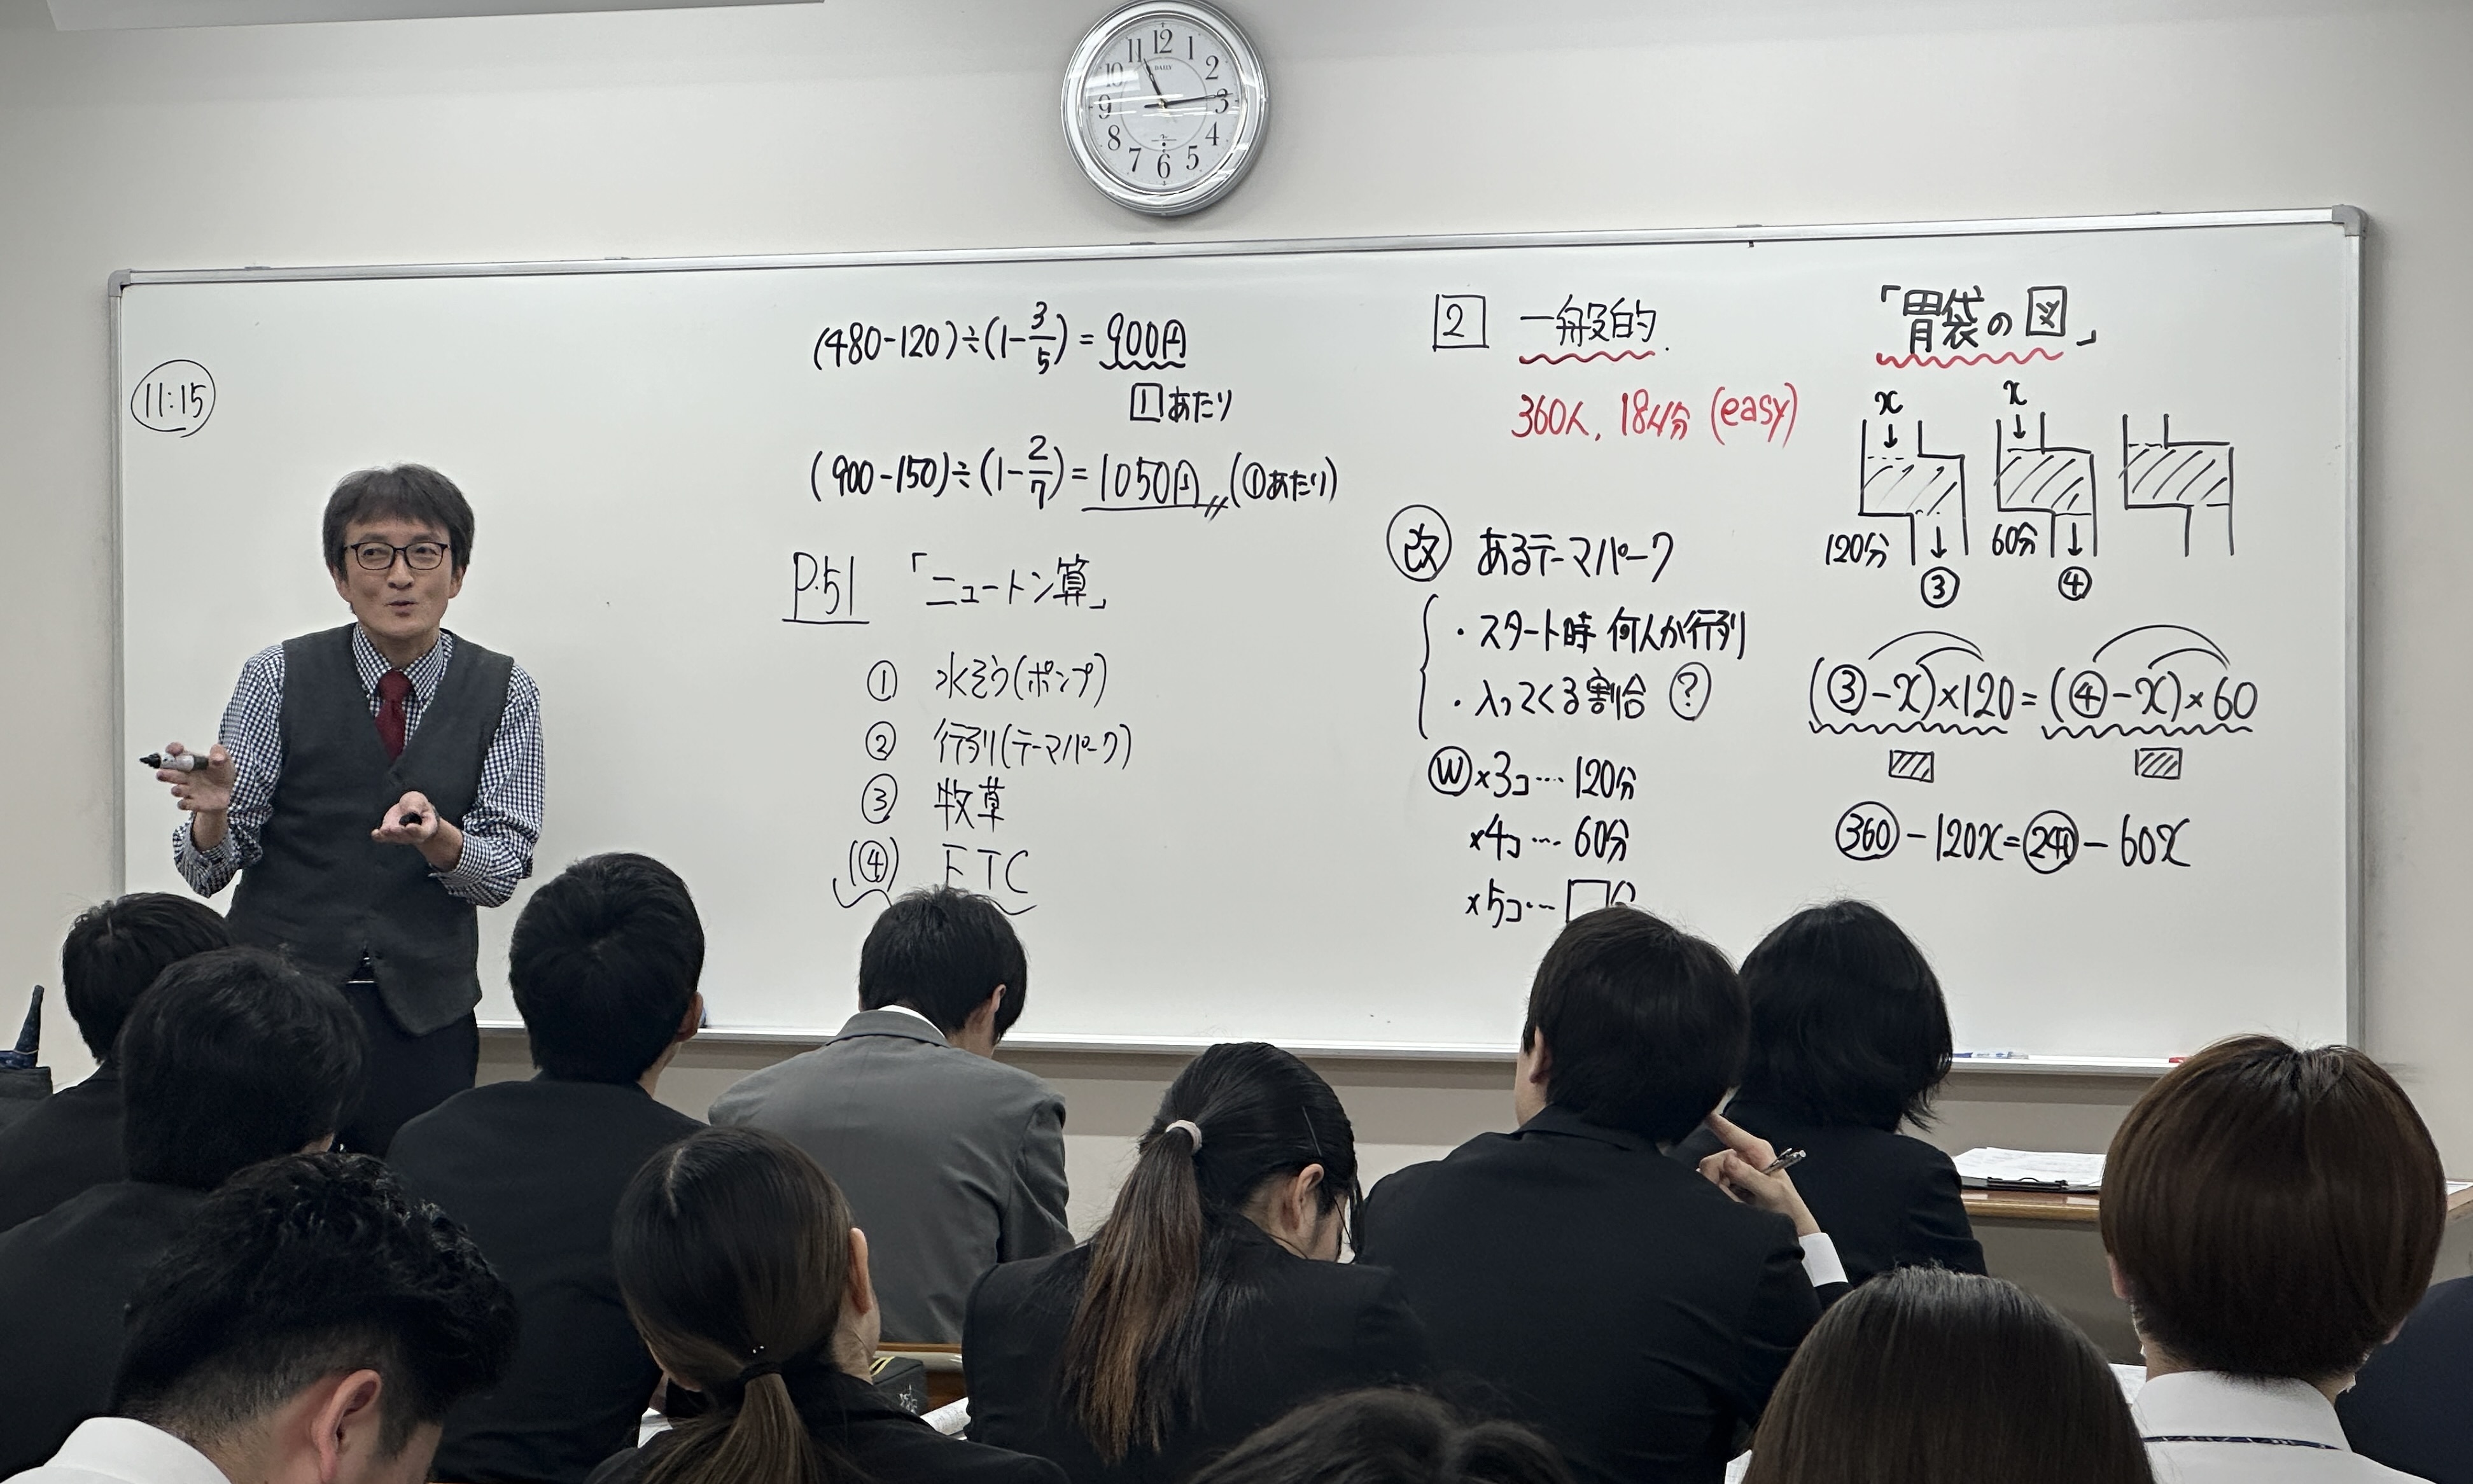 11 12 1
10 2
9 3
8 4
7 6 5
DAILY
11:15
(480-120)÷(1-3/5)=900円
1あたり
(900-150)÷(1-2/7)=1050円 (①あたり)
P.51 「ニュートン算」
① 水そう(ポンプ)
② 行列(テーマパーク)
③ 牧草
(④) ETC
2 一般的.
360人, 18分 (easy)
改 あるテーマパーク
・スタート時 何人か行列
・入ってくる割合 ?
Ⓦ×3コ…120分
×4コ…60分
×5コ…□分
「胃袋の図」
x x
120分 60分
③ ④
(③-x)×120=(④-x)×60
㊱⓪-120x=②④⓪-60x